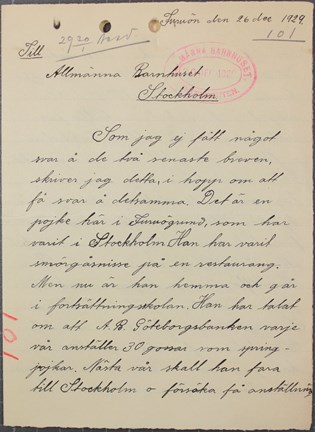 Furuön den 26 dec 1929
2920 Besv
101
Till
Allmänna Barnhuset
Stockholm
Som jag ej fått något
svar å de två senaste breven,
skriver jag detta, i hopp om att
få svar å detsamma. Det är en
pojke här i Furuögrund, som har
varit i Stockholm. Han har varit
smörgåsnisse på en restaurang.
Men nu är han hemma och går
i fortsättningsskolan. Han har talat
om att A.B. Göteborgsbanken varje
vår anställer 30 gossar som spring-
pojkar. Nästa vår skall han fara
till Stockholm o försöka få anställning
101